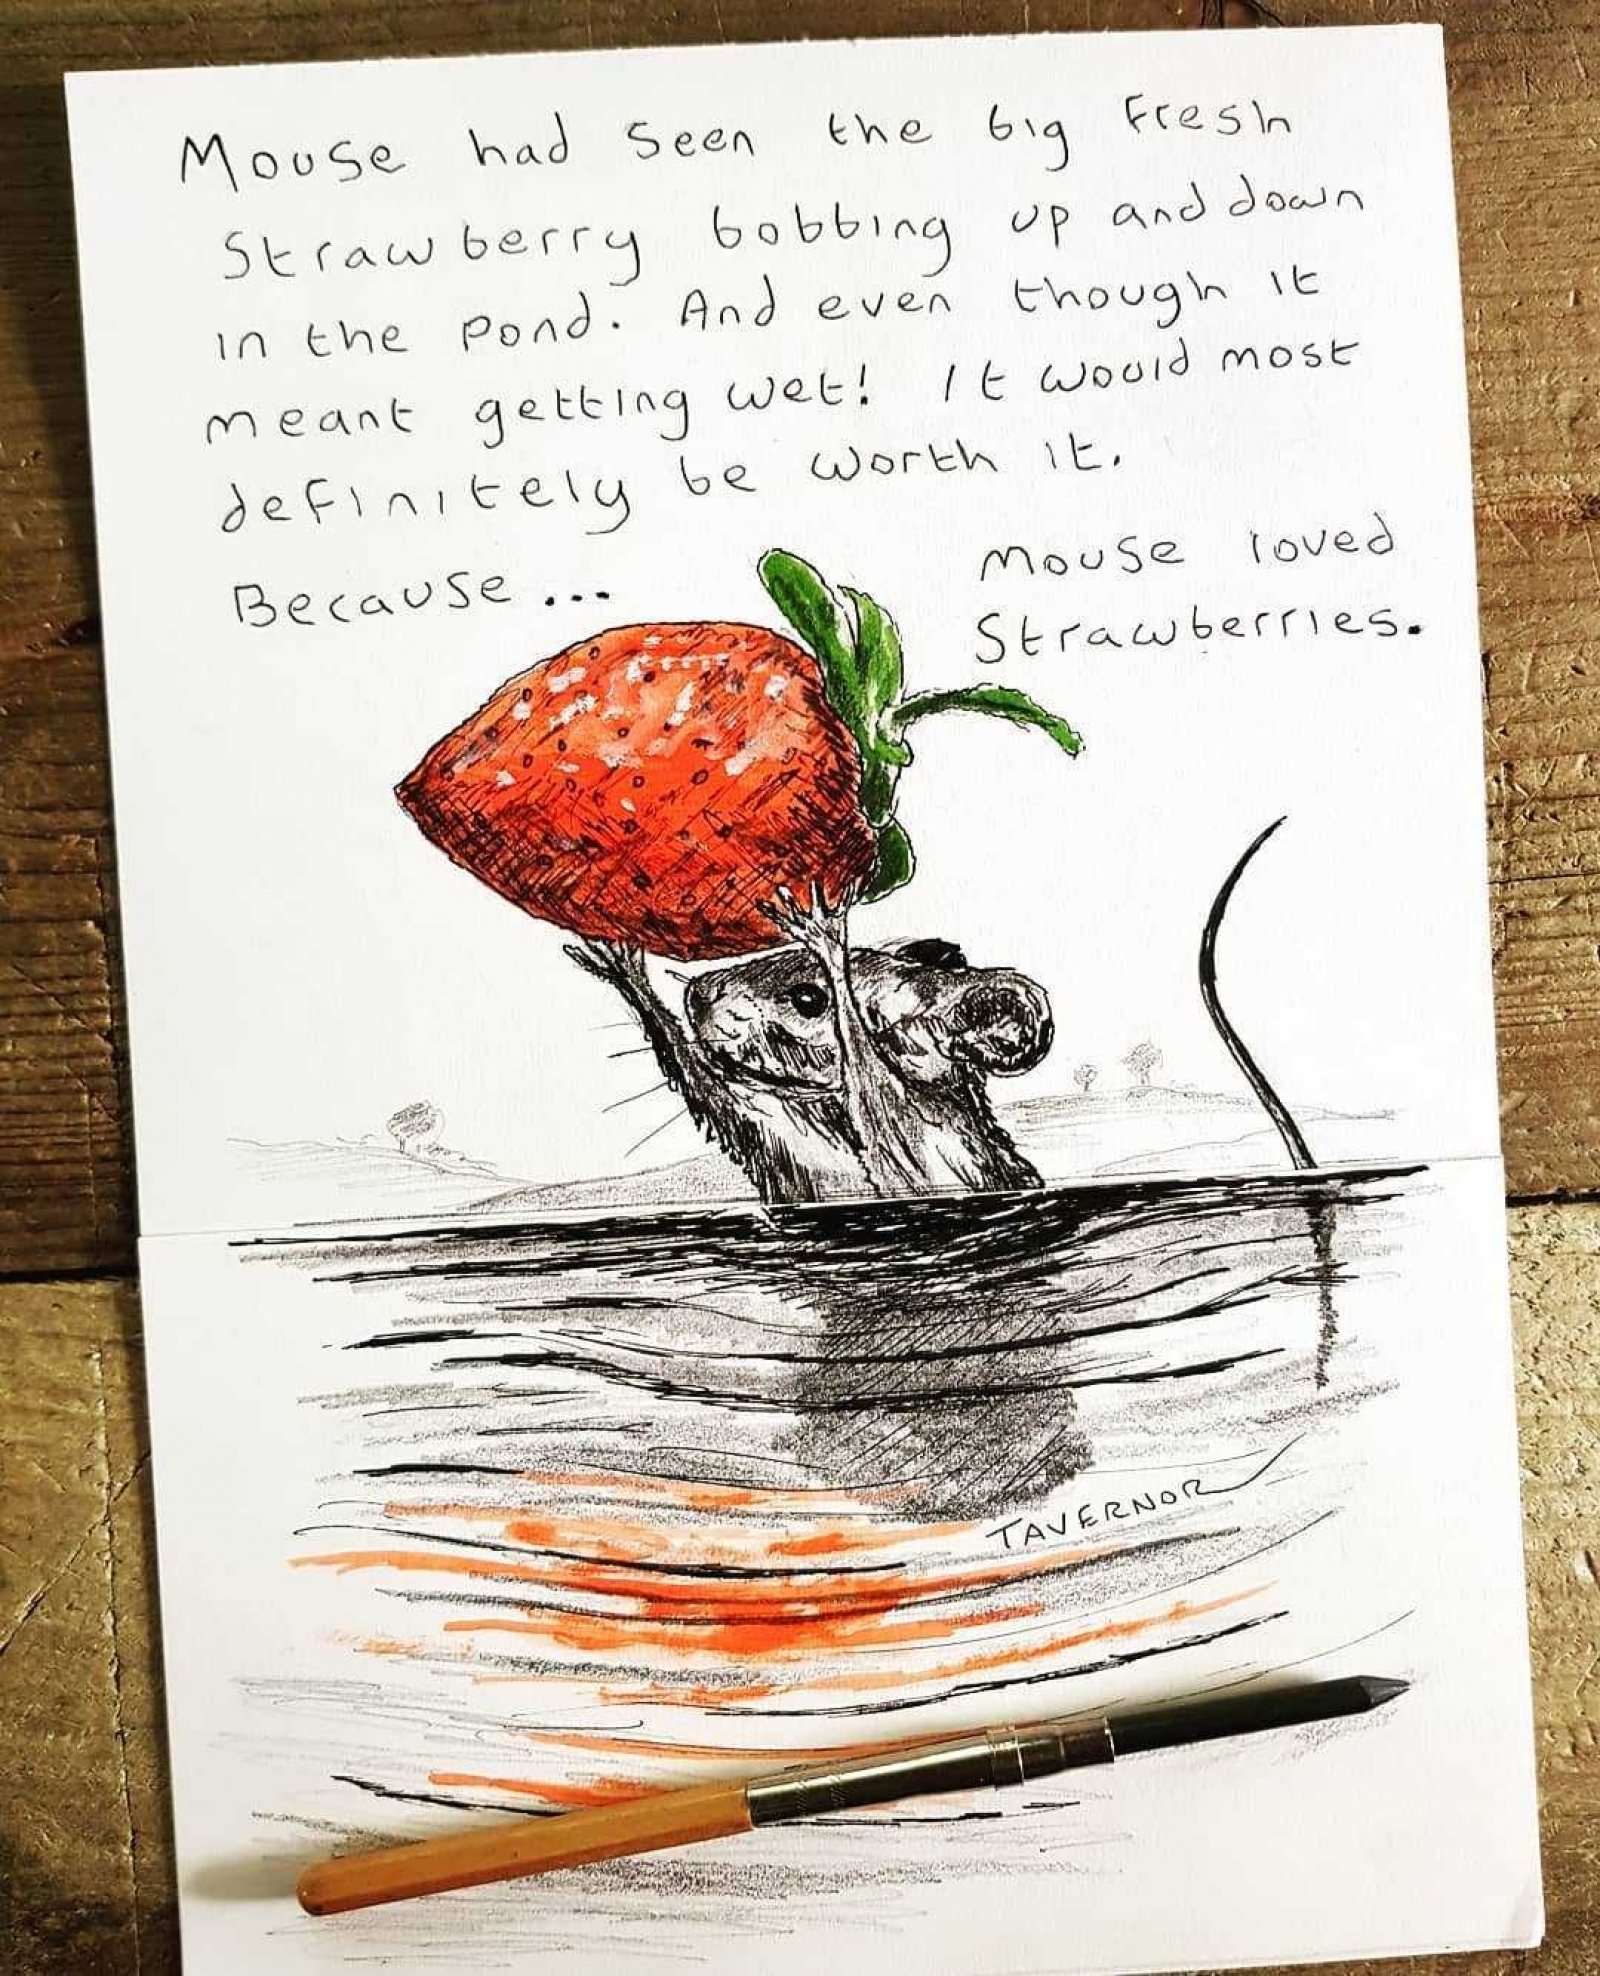 Mouse had seen the big fresh
strawberry bobbing up and down
in the pond. And even though it
meant getting wet! It would most
definitely be worth it.
Because...
Mouse loved
strawberries.
TAVERNOR